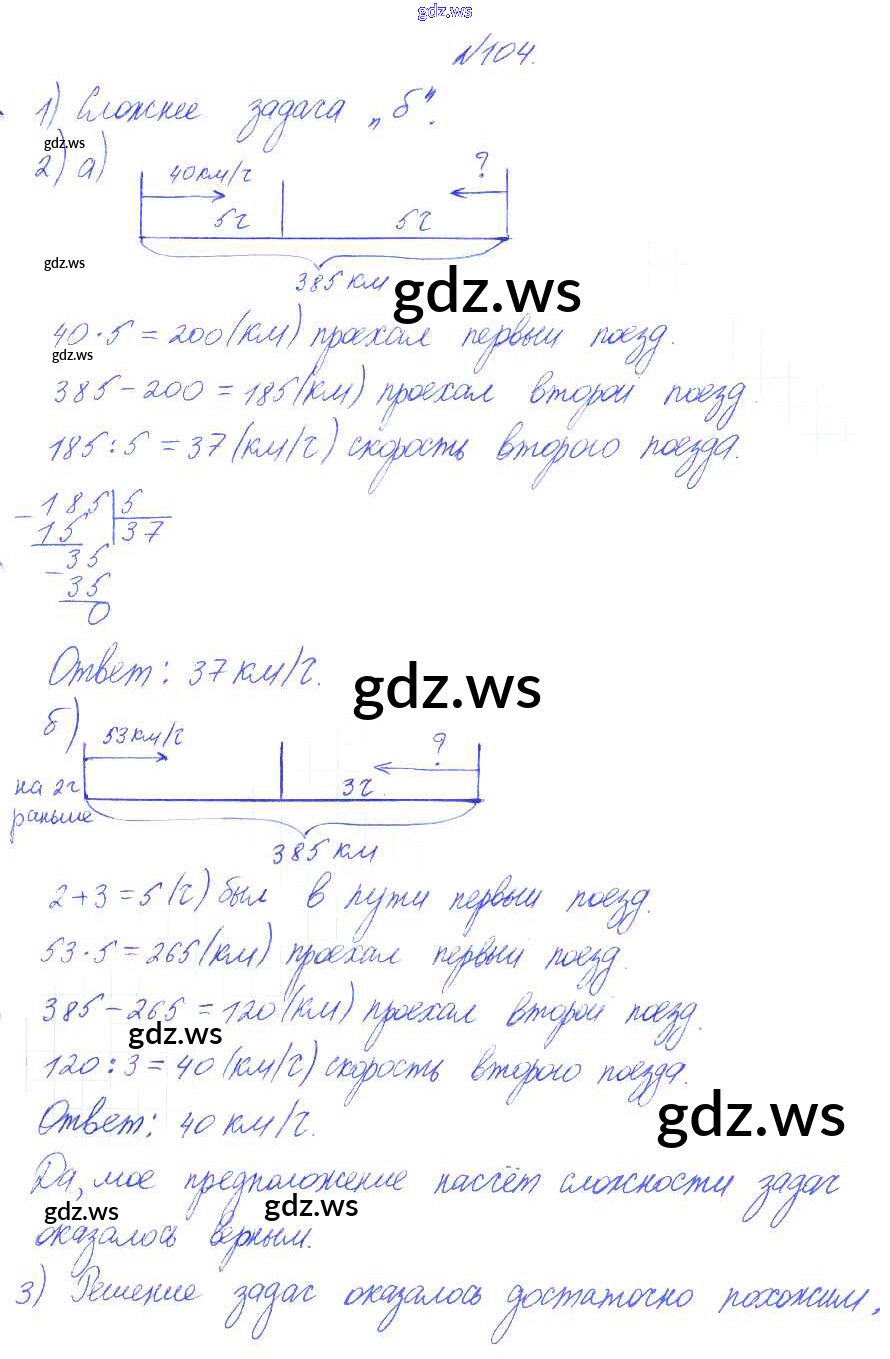 gdz.ws
№104.
1) Сложнее задача „б".
gdz.ws
2) а)
40км/ч ?
5ч 5ч
gdz.ws
385 км
gdz.ws
40·5=200(км) проехал первый поезд.
gdz.ws
385-200=185(км) проехал второй поезд.
185:5=37(км/ч) скорость второго поезда.
- 185 | 5
15 | 37
- 35
35
0
Ответ: 37 км/ч.
gdz.ws
б)
53км/ч ?
на 2ч
раньше
3ч
385 км
2+3=5(ч) был в пути первый поезд.
53·5=265(км) проехал первый поезд.
385-265=120(км) проехал второй поезд.
gdz.ws
120:3=40(км/ч) скорость второго поезда.
gdz.ws
Ответ: 40 км/ч.
Да, мое предположение насчёт сложности задач
gdz.ws gdz.ws
оказалось верным.
3) Решение задач оказалось достаточно похожим,